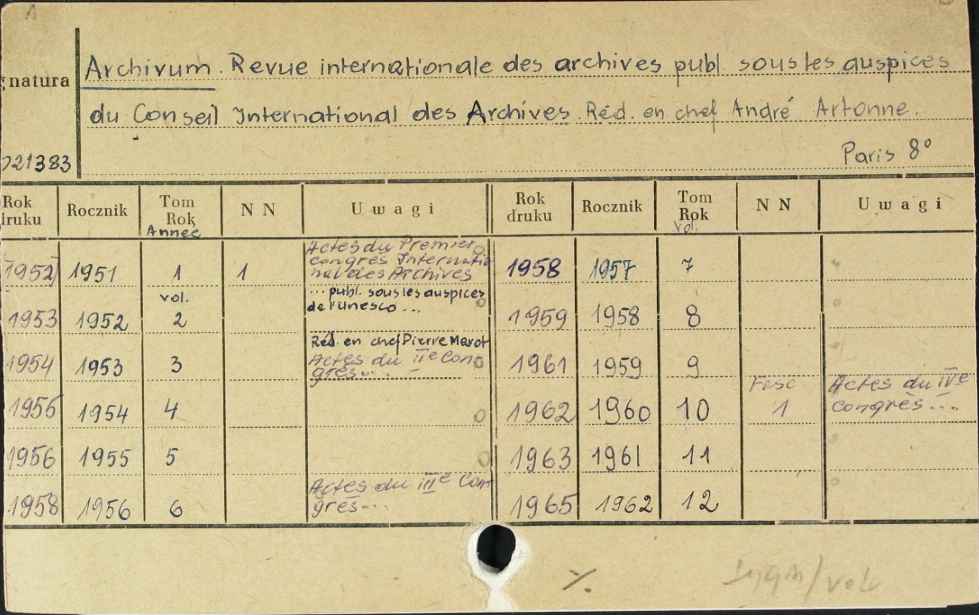 Archivum. Revue internationale des archives publ. sous les auspices
gnatura
du Conseil International des Archives. Réd. en chef André Artonne.
021383
Paris 8°
Rok druku Rocznik Tom Rok NN Uwagi Rok druku Rocznik Tom Rok NN Uwagi
Année Vol.
Actes du Premier
congrès Internatio
nal des Archives
1952 1951 1 1 1958 1957 7
vol. ... publ. sous les auspices
de l'Unesco ...
1953 1952 2 1959 1958 8
Réd. en chef Pierre Marot
1954 1953 3 Actes du IIe Con 1961 1959 9
grès...
Fasc Actes du IVe
1955 1954 4 1962 1960 10 1 congrès...
1956 1955 5 1963 1961 11
Actes du IIIe Con
1958 1956 6 grès... 1965 1962 12
%